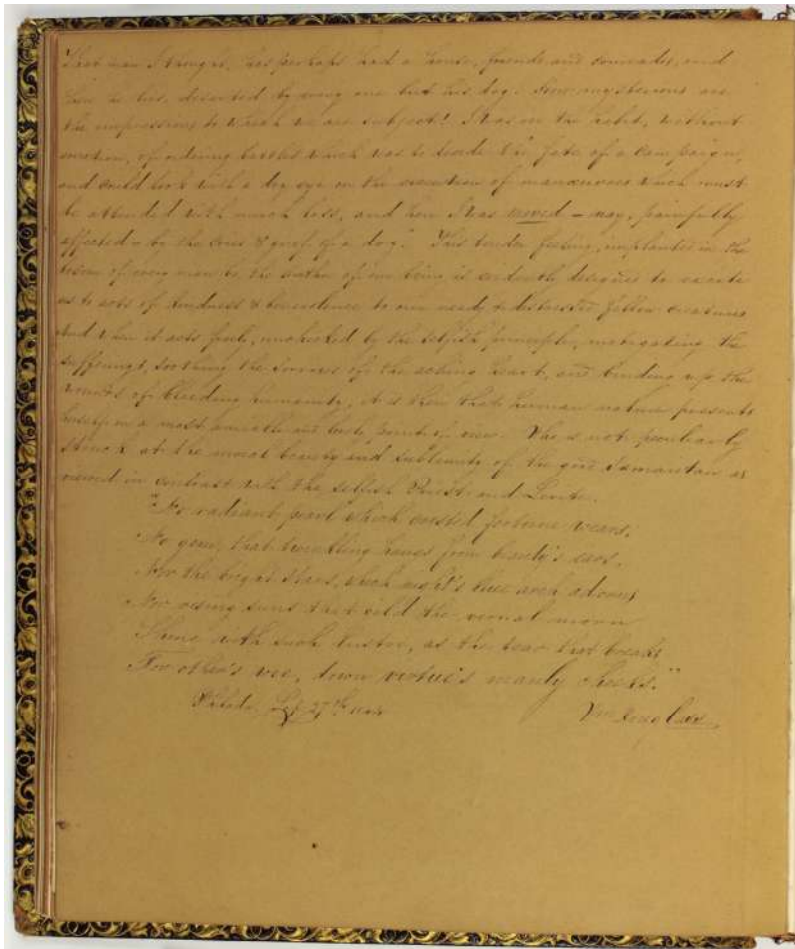 "That man I thought, has perhaps had a house, friends and comrades, and
here he lies, deserted by every one but his dog. How mysterious are
the impressions to which we are subject! I was in the habit, without
emotion, of ordering battles which was to decide the fate of a campaign,
and could look with a dry eye on the execution of manœuvres which must
be attended with much loss, and here I was moved – nay, painfully
affected – by the cries & grief of a dog." This tender feeling, implanted in the
bosom of every man by the author of our being is evidently designed to excite
us to acts of kindness & benevolence to our needy & distressed fellow creatures
And when it acts freely, unchecked by the selfish principle, mitigating the
sufferings, soothing the sorrows of the aching heart, and binding up the
wounds of bleeding humanity, it is then that human nature presents
herself in a most amiable and lovely point of view. Who is not peculiarly
struck at the moral beauty and sublimity of the good Samaritan as
viewed in contrast with the selfish Priest and Levite.
"No radiant pearl which crested fortune wears,
No gem, that twinkling hangs from beauty's ears,
Nor the bright stars, which night's blue arch adorns,
Nor rising suns that gild the vernal morn
Shine with such lustre, as the tear that breaks
For other's woe, down virtue's manly cheeks."
Philada Sep 27th
Wm Douglass